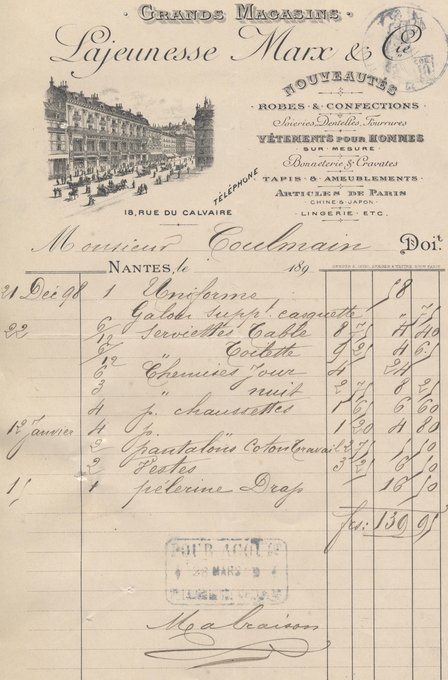 GRANDS MAGASINS
Lajeunesse Marx & Cie
NOUVEAUTÉS
ROBES & CONFECTIONS
Soieries, Dentelles, Fourrures
VÊTEMENTS POUR HOMMES
SUR MESURE
Bonneterie & Cravates
TAPIS & AMEUBLEMENTS
ARTICLES DE PARIS
CHINE & JAPON
LINGERIE - ETC.
TÉLÉPHONE
18, RUE DU CALVAIRE
Monsieur Coulmain Doit
NANTES, le 189
21 Déc 98 1 Uniforme 58
Galon Suppt casquette " 75
22 6/12 Serviettes Table 8 75 4 40
6/12 " Toilette 9 25 4 65
6 Chemises Jour 4 24
3 " nuit 2 75 8 25
4 p. chaussettes 1 65 6 60
12 Janvier 4 p. " 1 20 4 80
2 pantalons Coton Travail
2 Vestes 3 25 6 50
1 pélerine Drap 16 50
frs: 139 95
POUR ACQUIT
MARS
Malraison